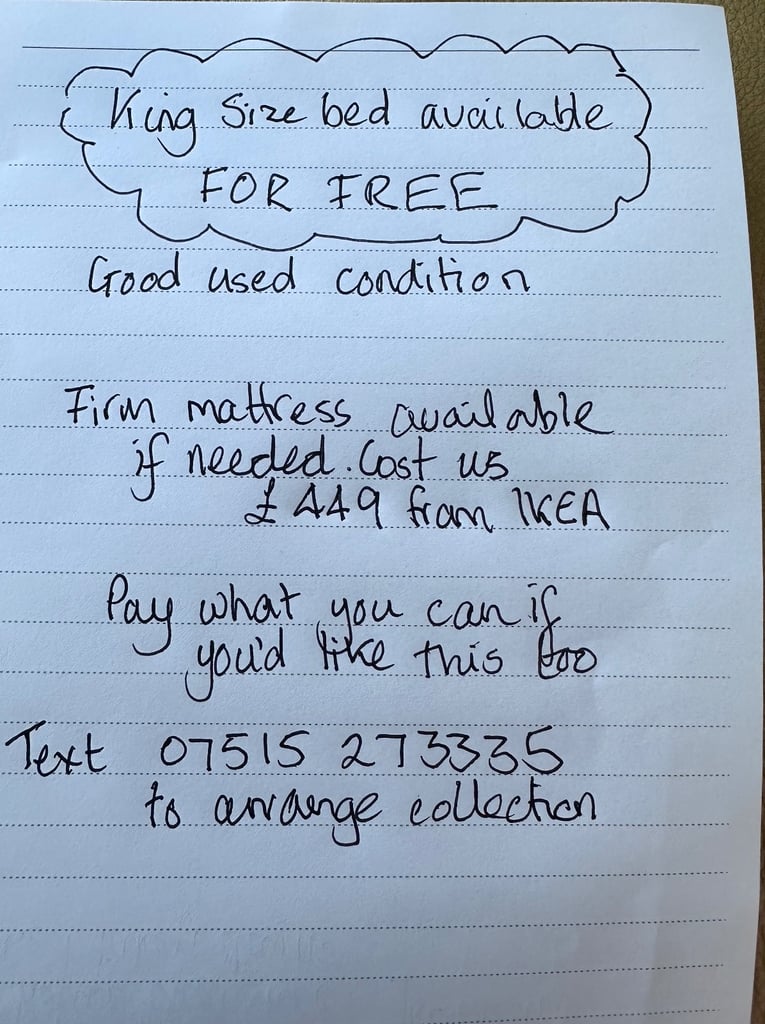 King Size bed available
FOR FREE
Good used condition
Firm mattress available
if needed. Cost us
£449 from IKEA
Pay what you can if
you'd like this too
Text 07515 273335
to arrange collection